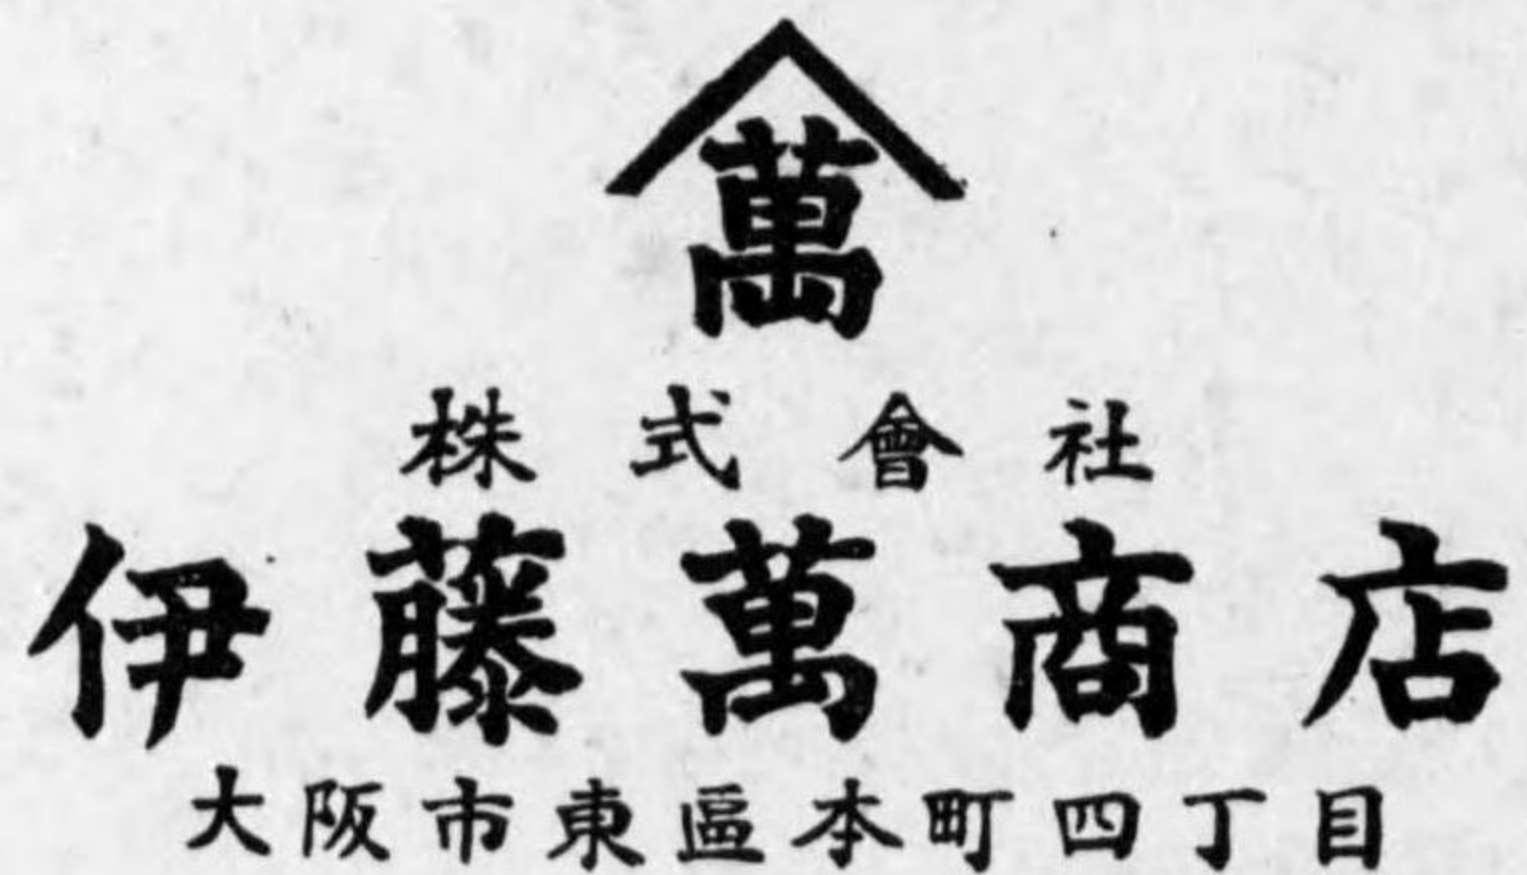 萬
株式會社
伊藤萬商店
大阪市東區本町四丁目